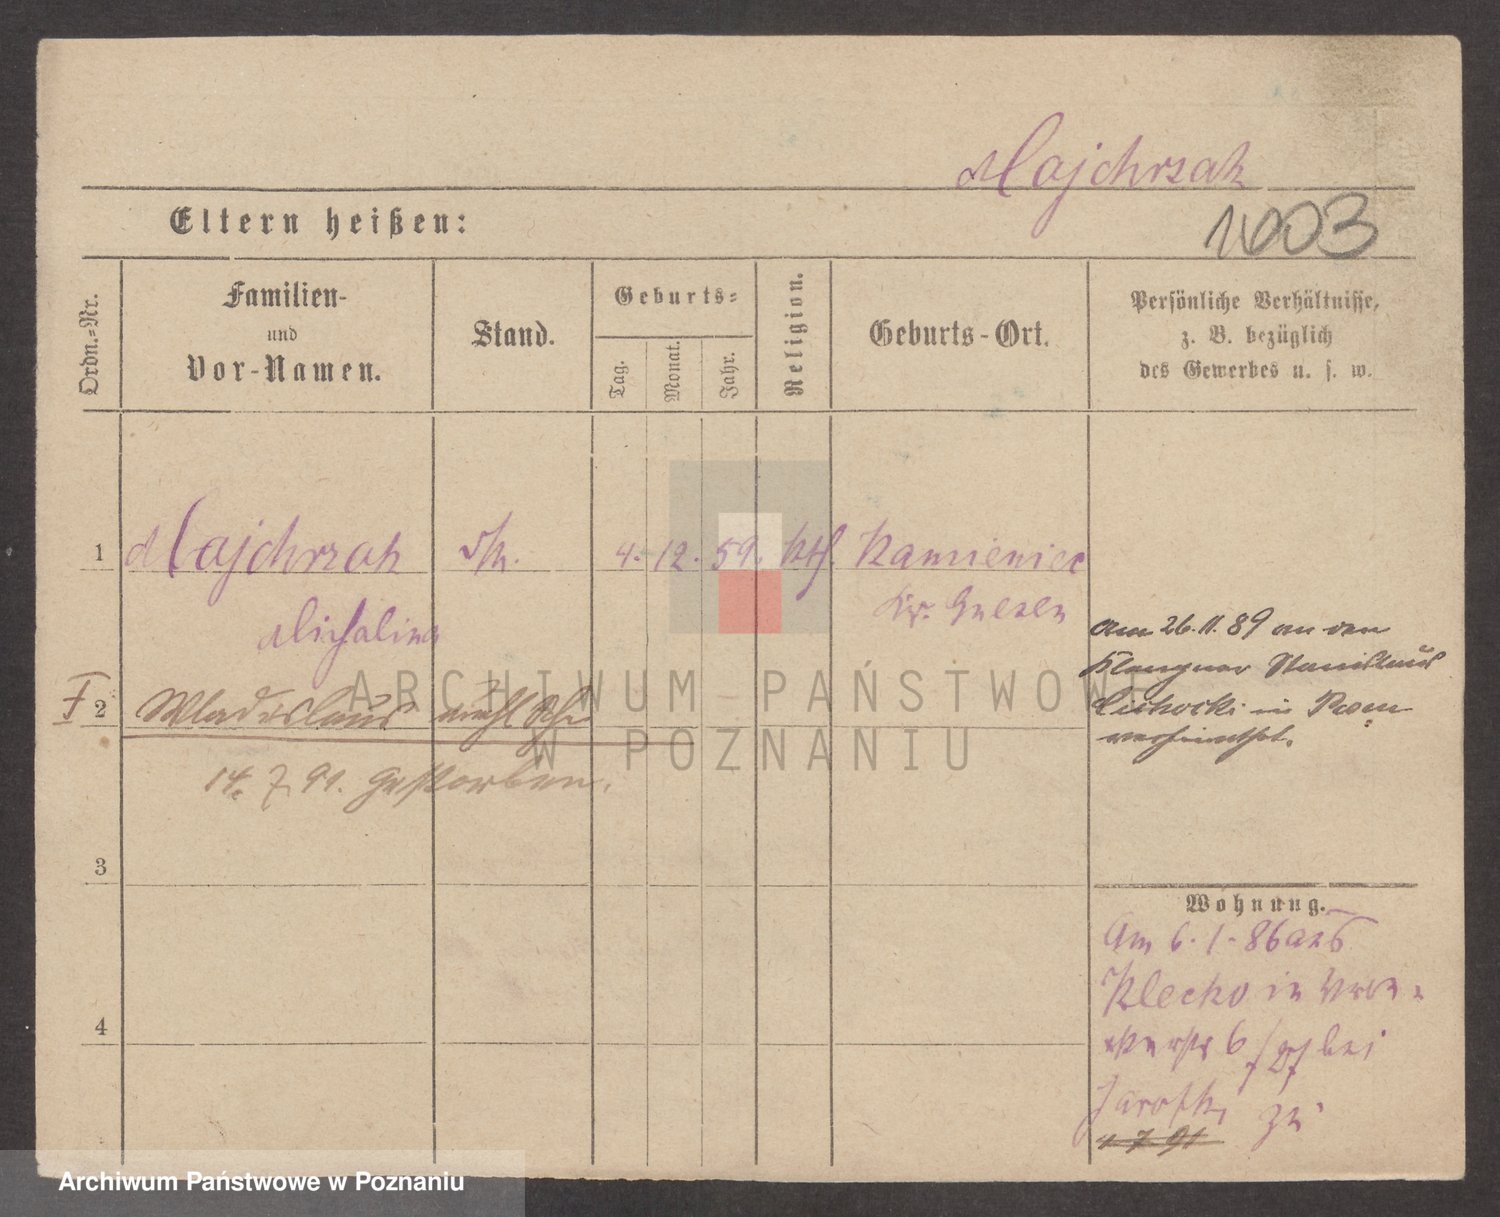 Majchrzak
1003
Eltern heißen:
Ordn.-Nr.
Familien-
und
Vor-Namen.
Stand.
Geburts-
Tag.
Monat.
Jahr.
Religion.
Geburts-Ort.
Persönliche Verhältnisse,
z. B. bezüglich
des Gewerbes u. s. w.
1 Majchrzak 4. 12. 59. kth. Kamieniec
Michalina Kr. Gnesen
am 26.11.89 an den
Klempner Stanislaus
Cichocki in Posen
verheirathet.
2 Wladislaus unehl Sohn
14. 7. 91. gestorben.
3
4
Wohnung.
Am 6. 1. 86 aus
Klecko in Wron-
kerstr 6 bei
zu
4 7 91
ARCHIWUM PAŃSTWOWE
W POZNANIU
Archiwum Państwowe w Poznaniu